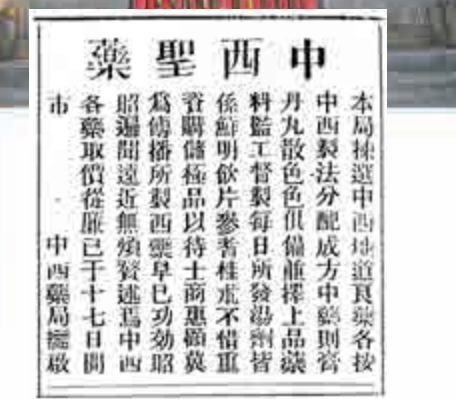 中西聖藥
本局揀選中西地道良藥各按
中西製法分配成方中藥則膏
丹丸散色色俱備並擇上品藥
料監工督製每日所發湯劑皆
係鮮明飲片參耆桂朮不惜重
資購儲極品以待士商惠顧冀
爲傳播所製西藥早已功効昭
昭遍聞遠近無煩贅述焉中西
各藥取價從廉已于十七日開
市 中西藥局謹啟